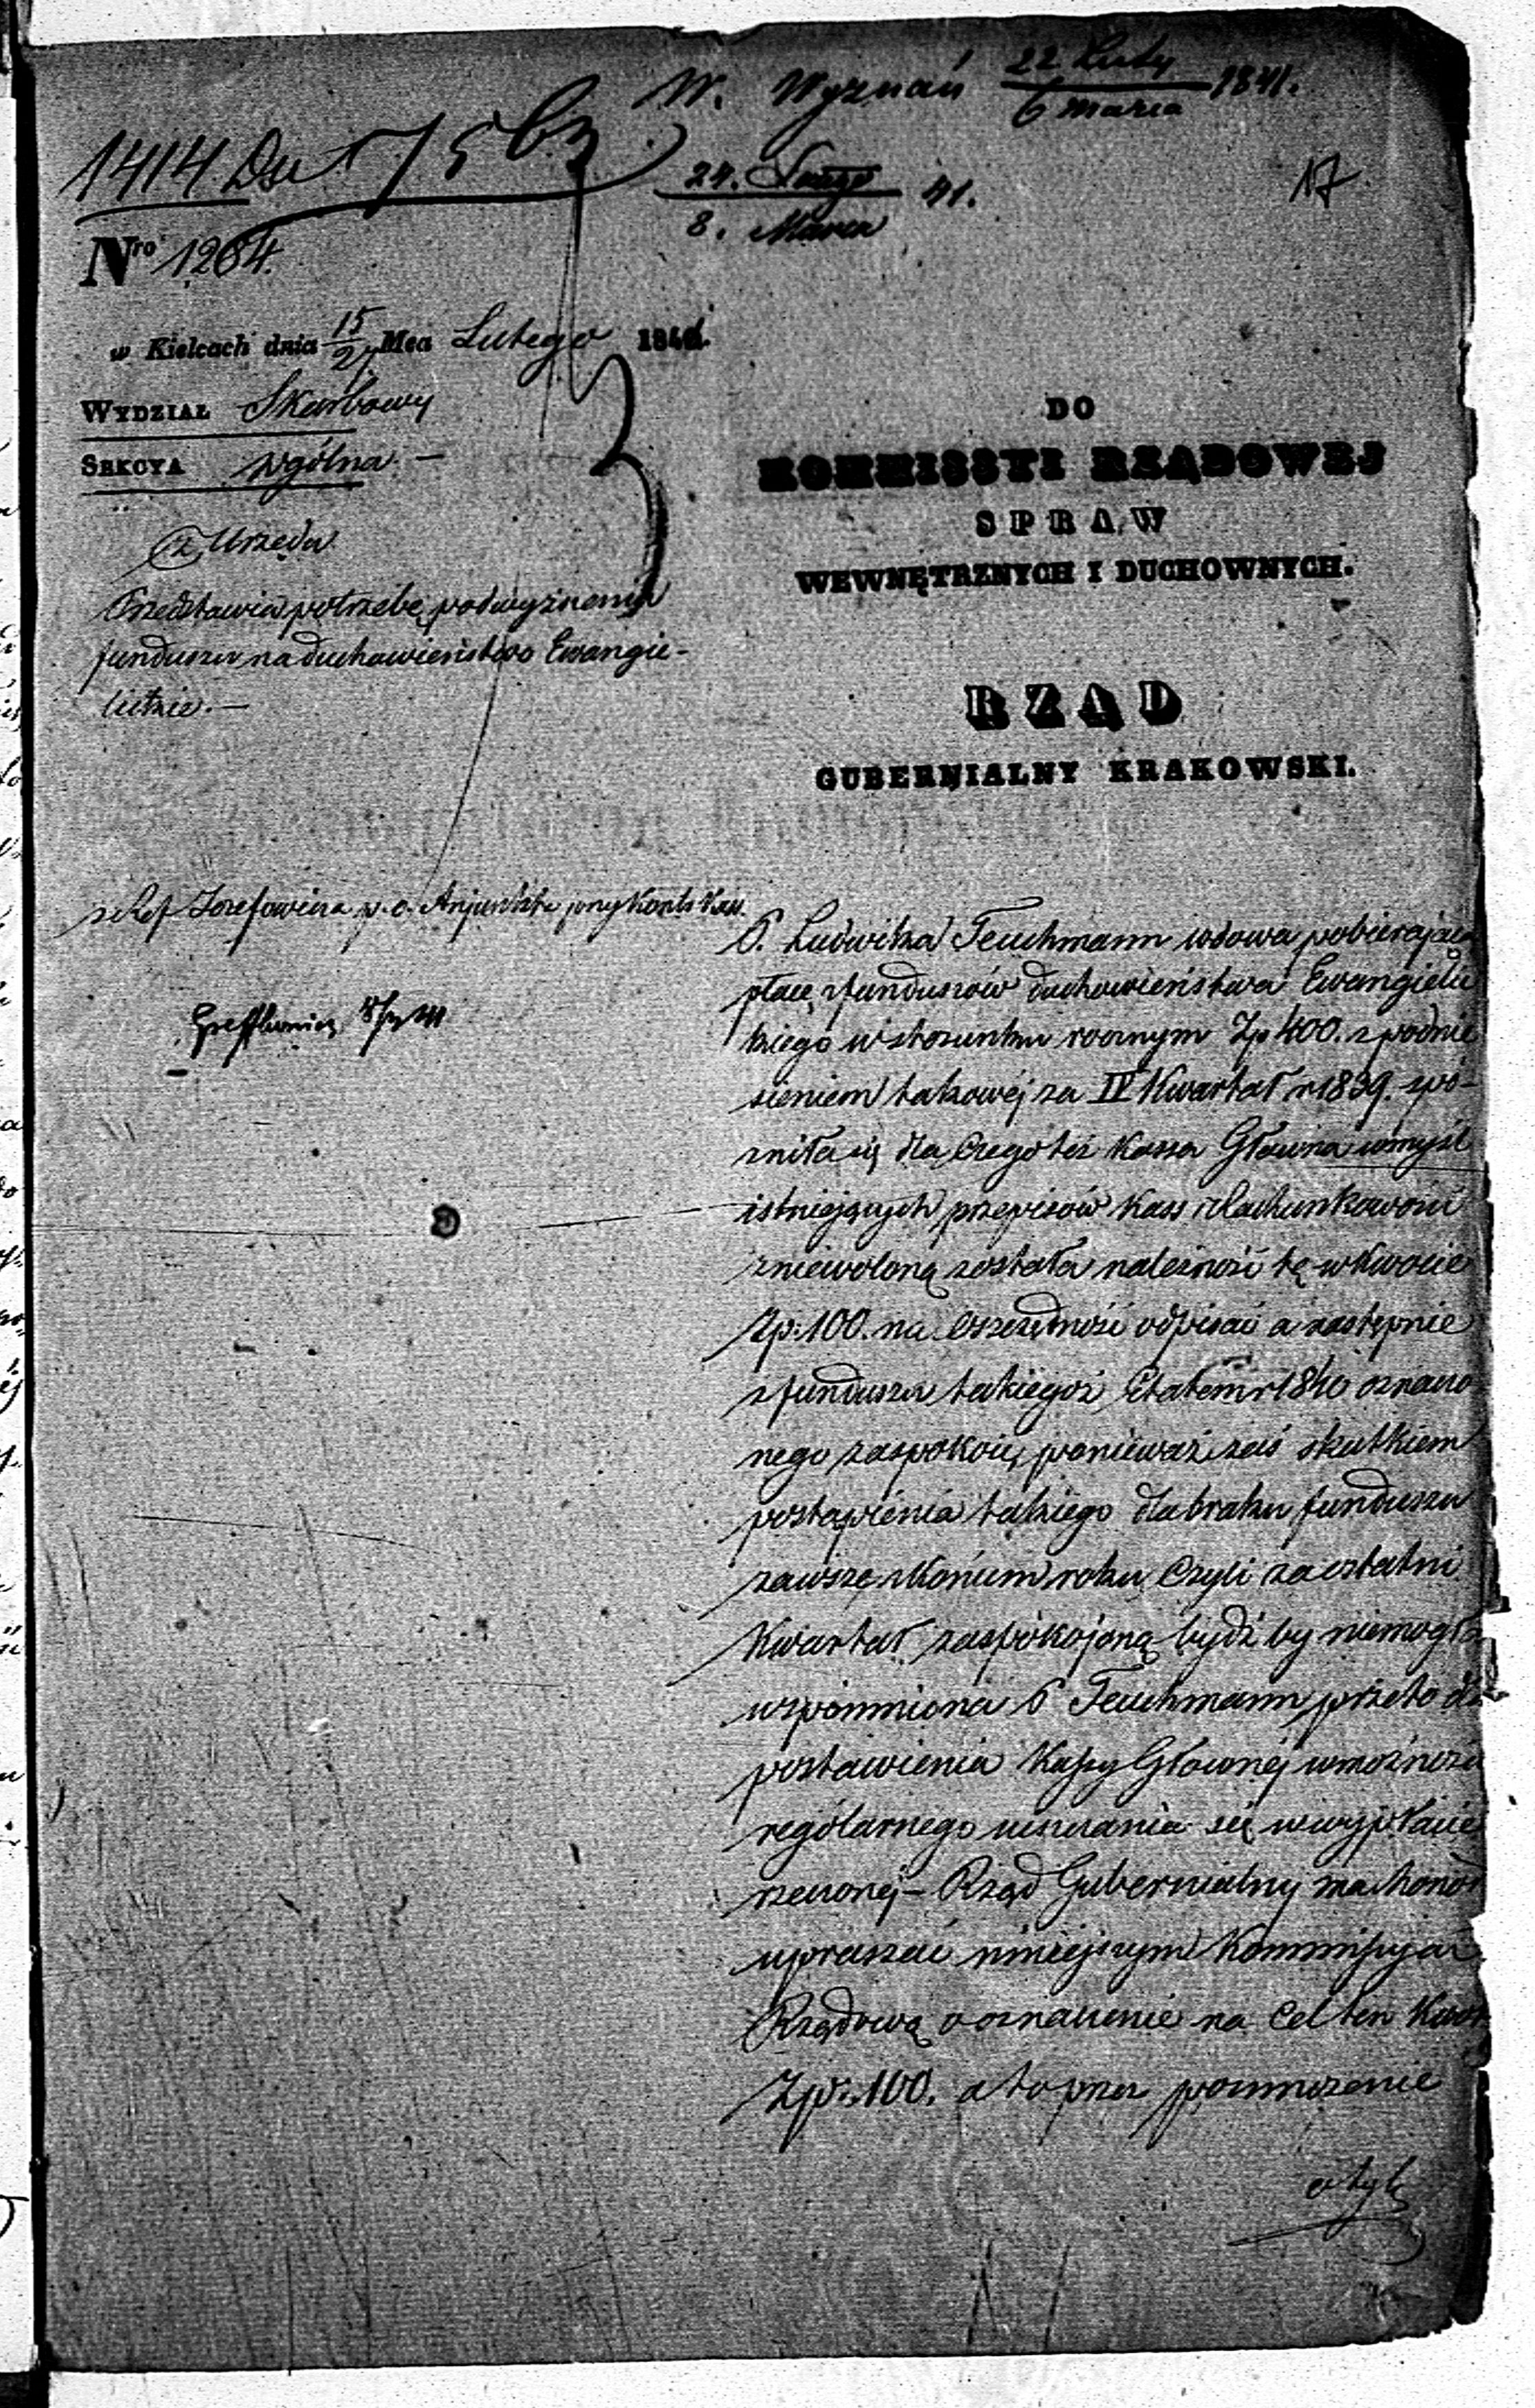 W. Wyznań 22 Luty / 6 Marca 1841.
1414 Du
24. Lutego / 8. Marca 41.
17
Nro 1264.
w Kielcach dnia 15/27 Mca Lutego 1841.
WYDZIAŁ Skarbowy
SEKCYA Ogólna. —
DO
KOMMISSYI RZĄDOWEJ
SPRAW
WEWNĘTRZNYCH I DUCHOWNYCH.
z Urzędu
Przedstawia potrzebę podwyższenia
funduszu na duchowieństwo Ewangie-
lickie. —
RZĄD
GUBERNIALNY KRAKOWSKI.
Józefowicza p. o.
P. Ludwika Teuchmann wdowa pobierająca
płacę z funduszów duchowieństwa Ewangielic
kiego w stosunku rocznym Zp 400. z podnie
sieniem takowéj za IV Kwartał r 1839. spó-
źniła się dla czego też Kassa Główna w myśl
istniejących przepisów Kass i Rachunkowości
zniewoloną została należność tę w kwocie
Zp: 100. na oszczędność odpisać a następnie
z funduszu takiegoż Etatem r 1840 oznaczo
nego zaspokoić, ponieważ zaś skutkiem
postąpienia takiego dla braku funduszu
zawsze z końcem roku czyli za ostatni
Kwartał zaspokojoną bydź by niemogła
wspomniona P Teuchmann przeto dla
postawienia Kassy Głównéj w możności
rególarnego uiszczania się w wypłacie
rzeczonej — Rząd Gubernialny ma honor
upraszać niniejszym Kommissyją
Rządową o oznaczenie na cel ten Kwot
Zp: 100. a to przez pomnożenie
etyk